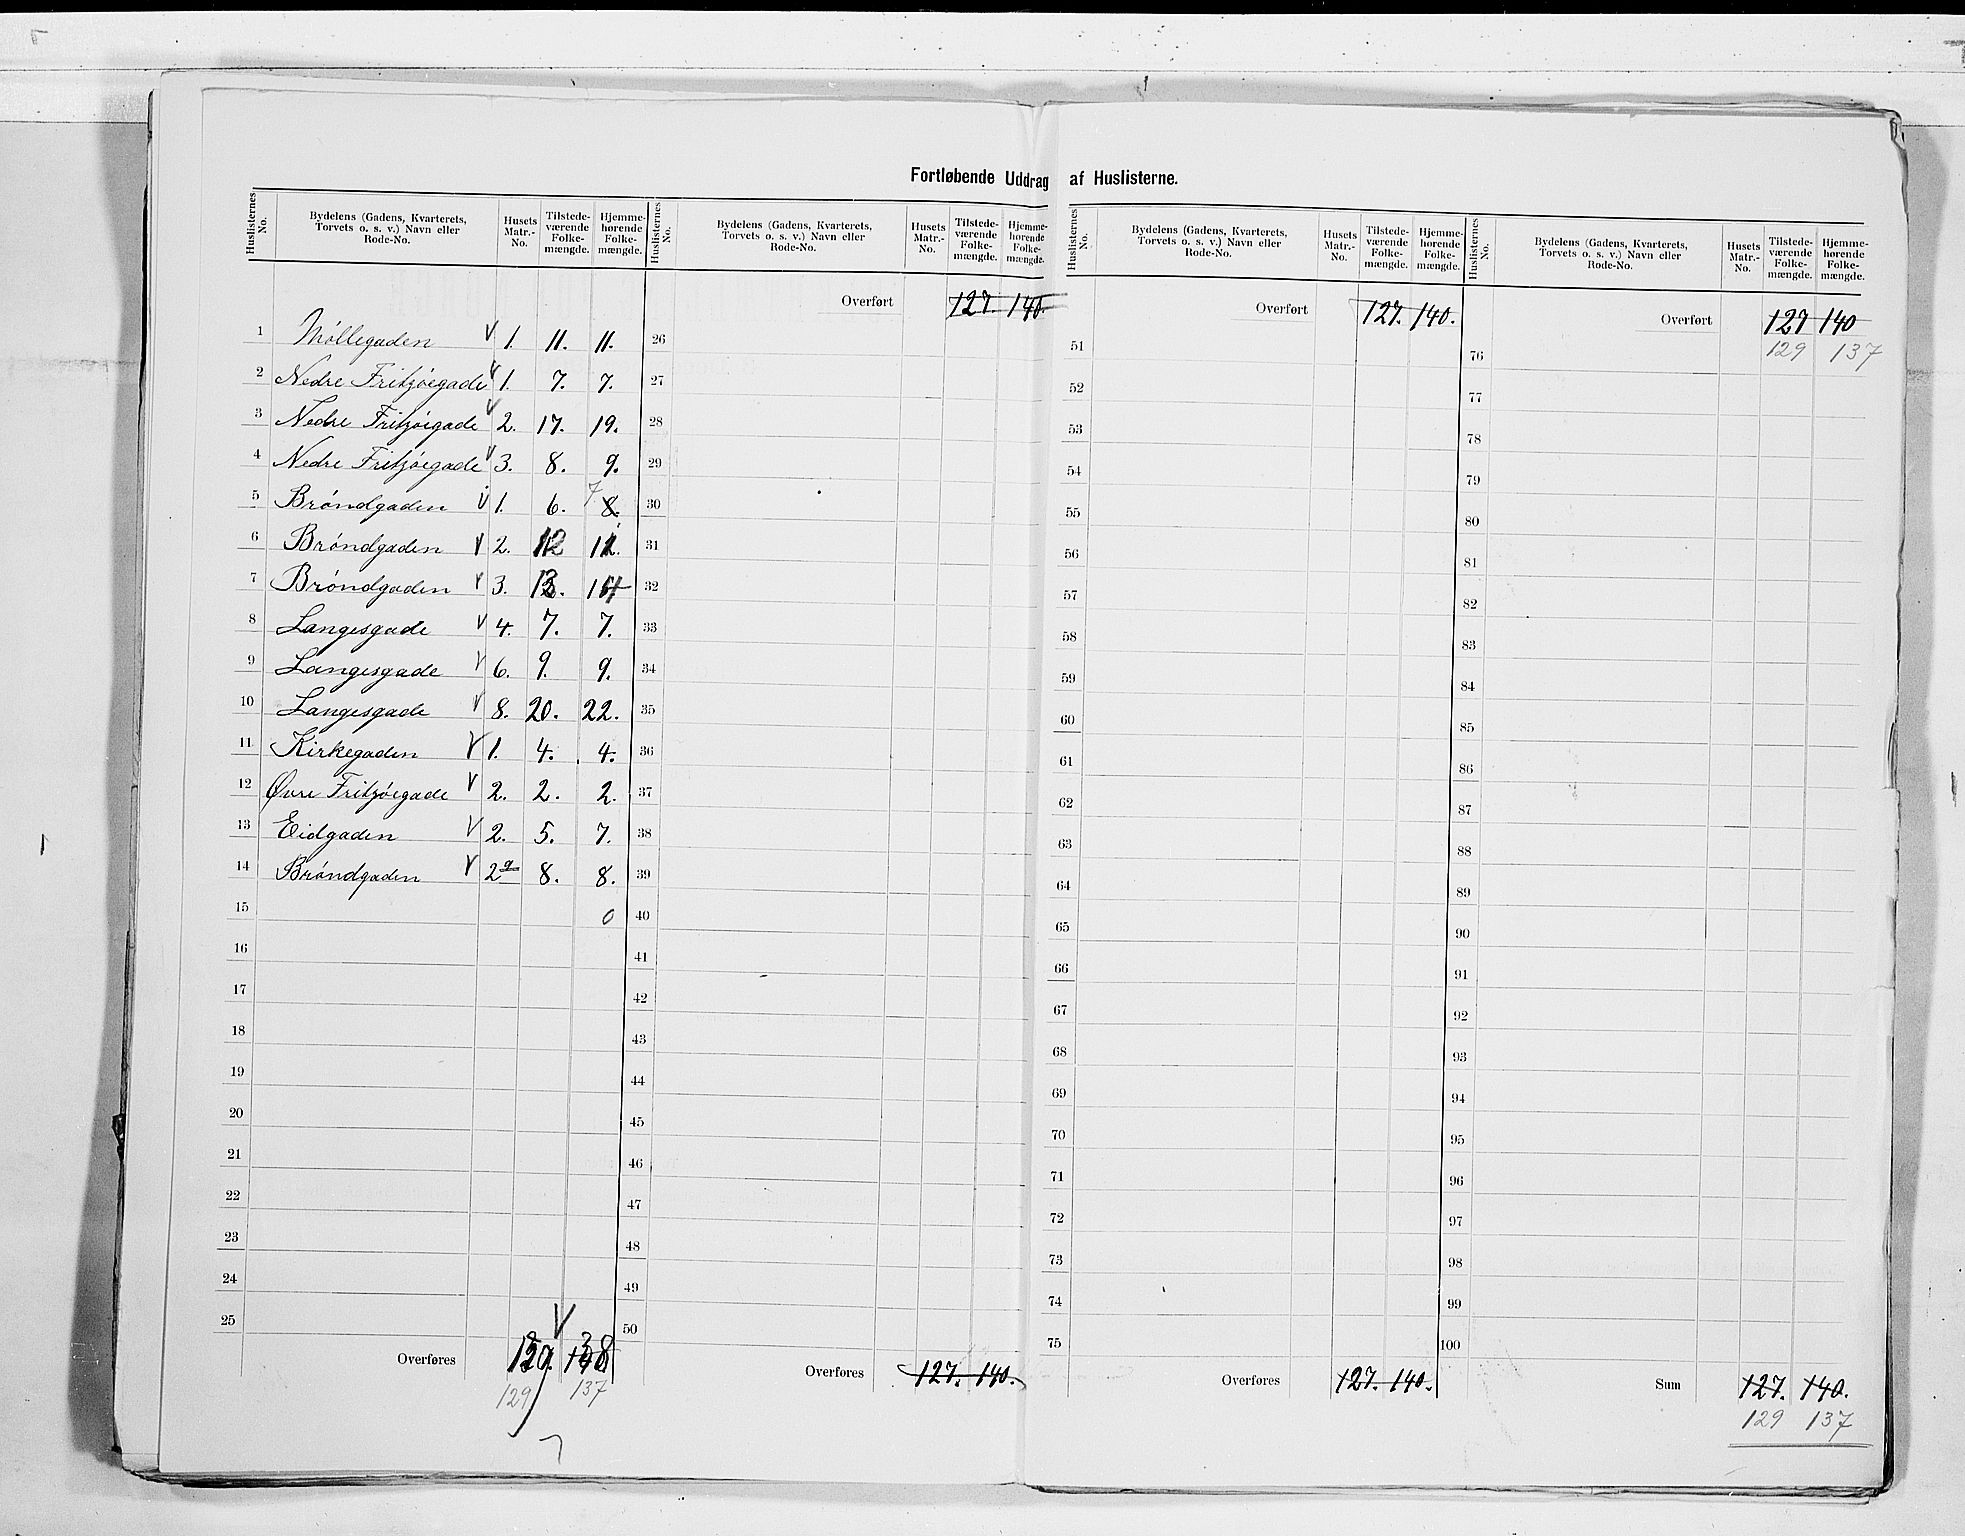 Fortløbende Uddrag af Huslisterne.
Huslisternes No. | Bydelens (Gadens, Kvarterets, Torvets o. s. v.) Navn eller Rode-No. | Husets Matr.-No. | Tilstede-værende Folke-mængde. | Hjemme-hørende Folke-mængde.
1 Møllegaden V 1. 11. 11.
2 Nedre Fritzöegade V 1. 7. 7.
3 Nedre Fritzöigade V 2. 17. 19.
4 Nedre Fritzöegade V 3. 8. 9.
5 Bröndgaden V 1. 6. 7 8.
6 Bröndgaden V 2. 12
7 Bröndgaden V 3. 13.
8 Langesgade V 4. 7. 7.
9 Langesgade V 6. 9. 9.
10 Langesgade V 8. 20. 22.
11 Kirkegaden V 1. 4. 4.
12 Øvre Fritzöegade V 2. 2. 2.
13 Eidgaden V 2. 5. 7.
14 Bröndgaden V 2a 8. 8.
15 0
16
17
18
19
20
21
22
23
24
25
V
Overføres 138
129 137
Huslisternes No. | Bydelens (Gadens, Kvarterets, Torvets o. s. v.) Navn eller Rode-No. | Husets Matr.-No. | Tilstede-værende Folke-mængde. | Hjemme-hørende Folke-mængde.
Overført 127. 140.
26
27
28
29
30
31
32
33
34
35
36
37
38
39
40
41
42
43
44
45
46
47
48
49
50
Overføres 127. 140.
Huslisternes No. | Bydelens (Gadens, Kvarterets, Torvets o. s. v.) Navn eller Rode-No. | Husets Matr.-No. | Tilstede-værende Folke-mængde. | Hjemme-hørende Folke-mængde.
Overført 127. 140.
51
52
53
54
55
56
57
58
59
60
61
62
63
64
65
66
67
68
69
70
71
72
73
74
75
Overføres 127. 140.
Huslisternes No. | Bydelens (Gadens, Kvarterets, Torvets o. s. v.) Navn eller Rode-No. | Husets Matr.-No. | Tilstede-værende Folke-mængde. | Hjemme-hørende Folke-mængde.
Overført 127 140
129 137
76
77
78
79
80
81
82
83
84
85
86
87
88
89
90
91
92
93
94
95
96
97
98
99
100
Sum 127. 140.
129 137